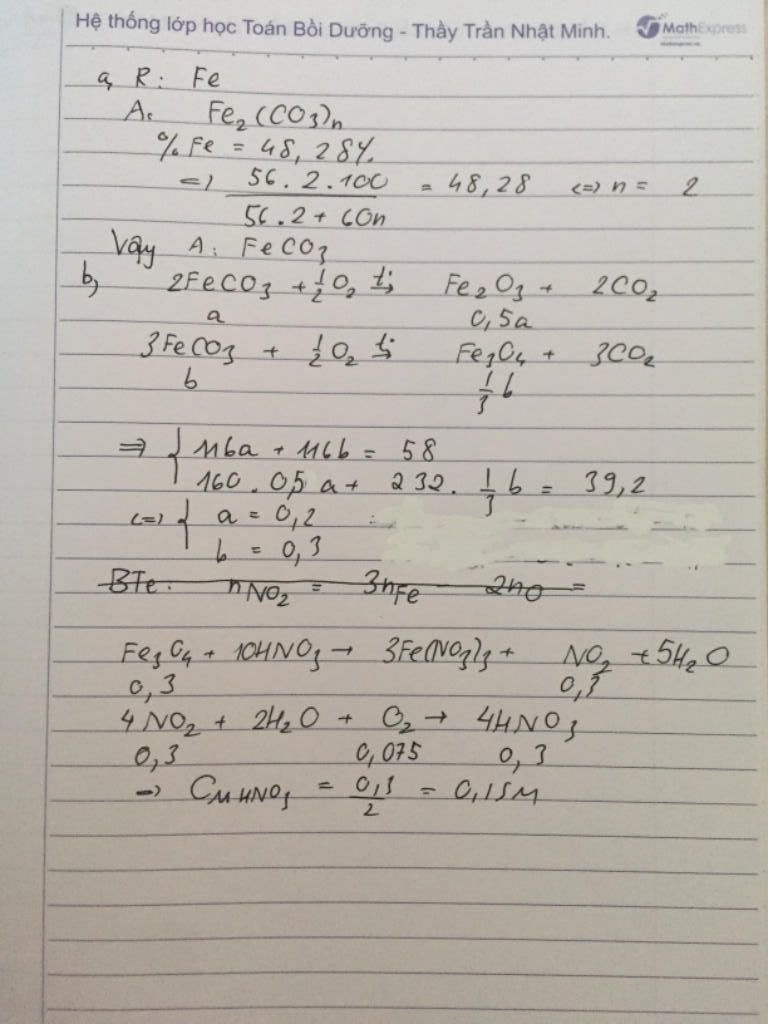 Hệ thống lớp học Toán Bồi Dưỡng - Thầy Trần Nhật Minh. MathExpress
a, R: Fe
A: Fe₂(CO₃)ₙ
% Fe = 48,28%
=> 56.2.100 / 56.2 + 60n = 48,28 <=> n = 2
Vậy A: FeCO₃
b, 2FeCO₃ + 1/2 O₂ t°→ Fe₂O₃ + 2CO₂
a 0,5a
3FeCO₃ + 1/2 O₂ t°→ Fe₃O₄ + 3CO₂
b 1/3 b
=> { 116a + 116b = 58
160.0,5a + 232.1/3 b = 39,2
<=> { a = 0,2
b = 0,3
BTe: nNO₂ = 3nFe - 2nO =
Fe₃O₄ + 10HNO₃ → 3Fe(NO₃)₃ + NO₂ + 5H₂O
0,3 0,3
4NO₂ + 2H₂O + O₂ → 4HNO₃
0,3 0,075 0,3
→ CM HNO₃ = 0,3/2 = 0,15M